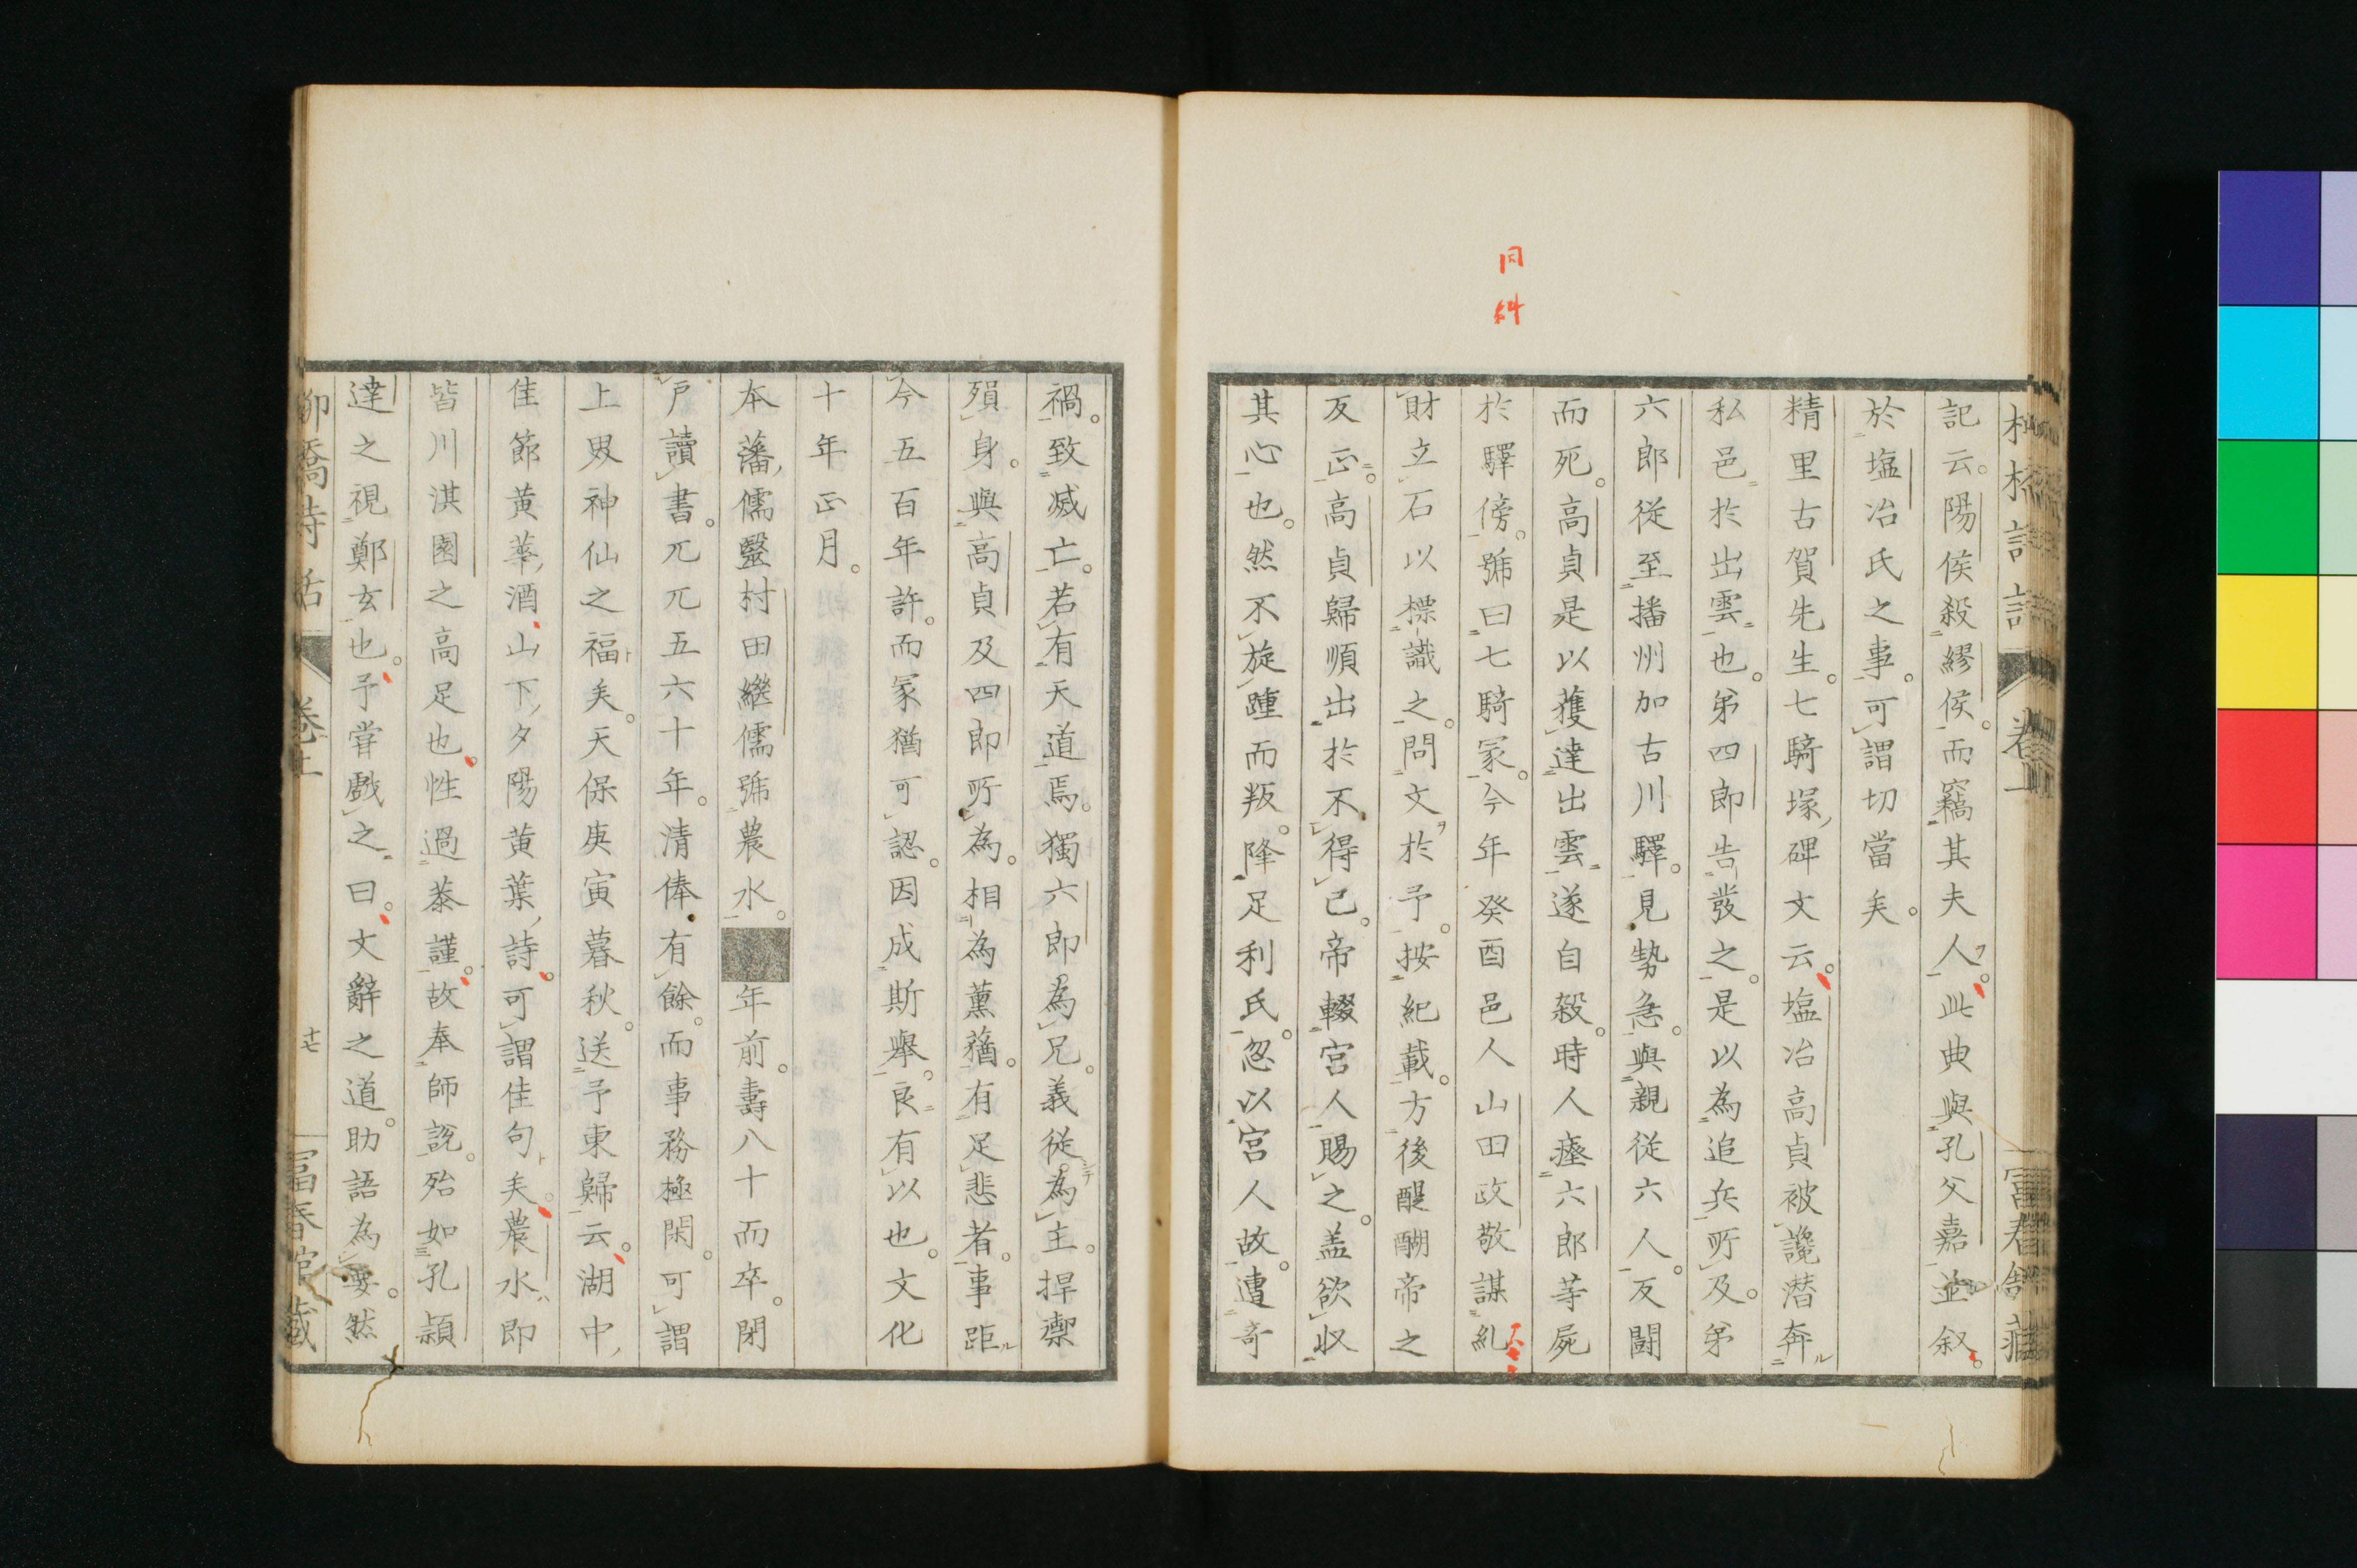 同
糾
記云。陽侯殺繆侯。而竊其夫人。此典與孔父嘉並叙。
於塩冶氏之事。可謂切當矣。
精里古賀先生。七騎塚碑文云。塩冶高貞被讒潜奔
私邑於出雲也。弟四郎告發之。是以為追兵所及。弟
六郎從至播州加古川驛。見勢急。與親從六人。反鬪
而死。高貞是以獲達出雲。遂自殺。時人瘞六郎等屍
於驛傍。號曰七騎冢。今年癸酉邑人山田政敬謀糺
財立石以標識之。問文於予。按紀載。方後醍醐帝之
反正。高貞歸順出於不得已。帝輟宮人賜之。盖欲收
其心也。然不旋踵而叛。降足利氏。忽以宮人故。遭奇
禍。致滅亡。若有天道焉。獨六郎為兄。義從為主。捍禦
殞身。與高貞及四郎所為。相為薫蕕。有足悲者。事距
今五百年許。而冢猶可認。因成斯舉。良有以也。文化
十年正月。
本藩儒毉村田繼儒號農水。年前。壽八十而卒。閉
戸讀書。兀兀五六十年。清俸有餘。而事務極閑。可謂
上界神仙之福矣。天保庚寅暮秋。送予東歸云。湖中
佳節黄華酒山下夕陽黄葉詩。可謂佳句矣。農水即
皆川淇園之高足也性過恭謹。故奉師說。殆如孔穎
達之視鄭玄也。予嘗戲之曰。文辭之道。助語為要。然
柳橋詩話
卷上
十七
富春館藏